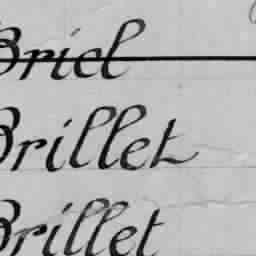 Briel
Brillet
Brillet